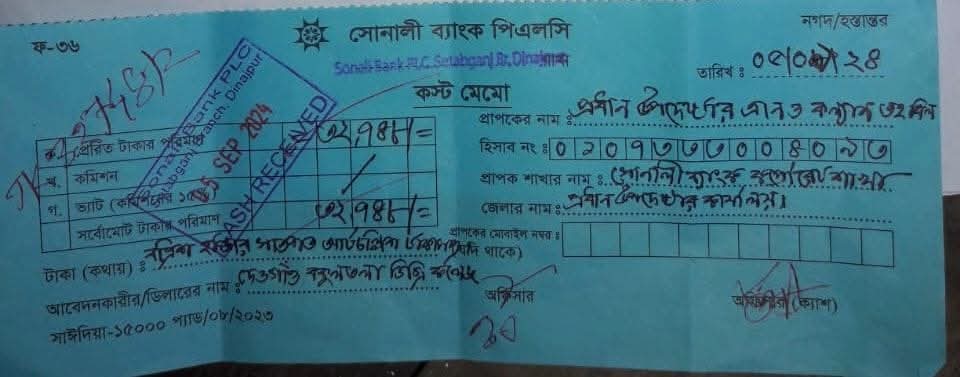 ফ-৩৬
সোনালী ব্যাংক পিএলসি
নগদ/হস্তান্তর
Sonali Bank PLC. Setabganj Br, Dinajpur
তারিখ : ০৫/০৯/২৪
কস্ট মেমো
প্রাপকের নাম : প্রধান উপদেষ্টার ত্রাণ ও কল্যাণ তহবিল
ক. প্রেরিত টাকার পরিমাণ ৩২,৭৪৮/=
হিসাব নং : ০১০৭৩৩৩০০৪০৯৩
খ. কমিশন
প্রাপক শাখার নাম : সোনালী ব্যাংক কর্পোরেট শাখা
গ. ভ্যাট (কমিশনের ১৫%)
জেলার নাম : প্রধান উপদেষ্টার কার্যালয়।
সর্বোমোট টাকার পরিমাণ ৩২,৭৪৮/=
প্রাপকের মোবাইল নম্বর :
(যদি থাকে)
Sonali Bank PLC
Setabganj Branch, Dinajpur
05 SEP 2024
CASH RECEIVED
টাকা (কথায়) : বত্রিশ হাজার সাতশত আটচল্লিশ টাকা মাত্র
আবেদনকারীর/ডিলারের নাম : দেওগাঁও বকুলতলা ডিগ্রি কলেজ
অফিসার
অফিসার (ক্যাশ)
সাঈদিয়া-১৫০০০ প্যাড/০৮/২০২৩